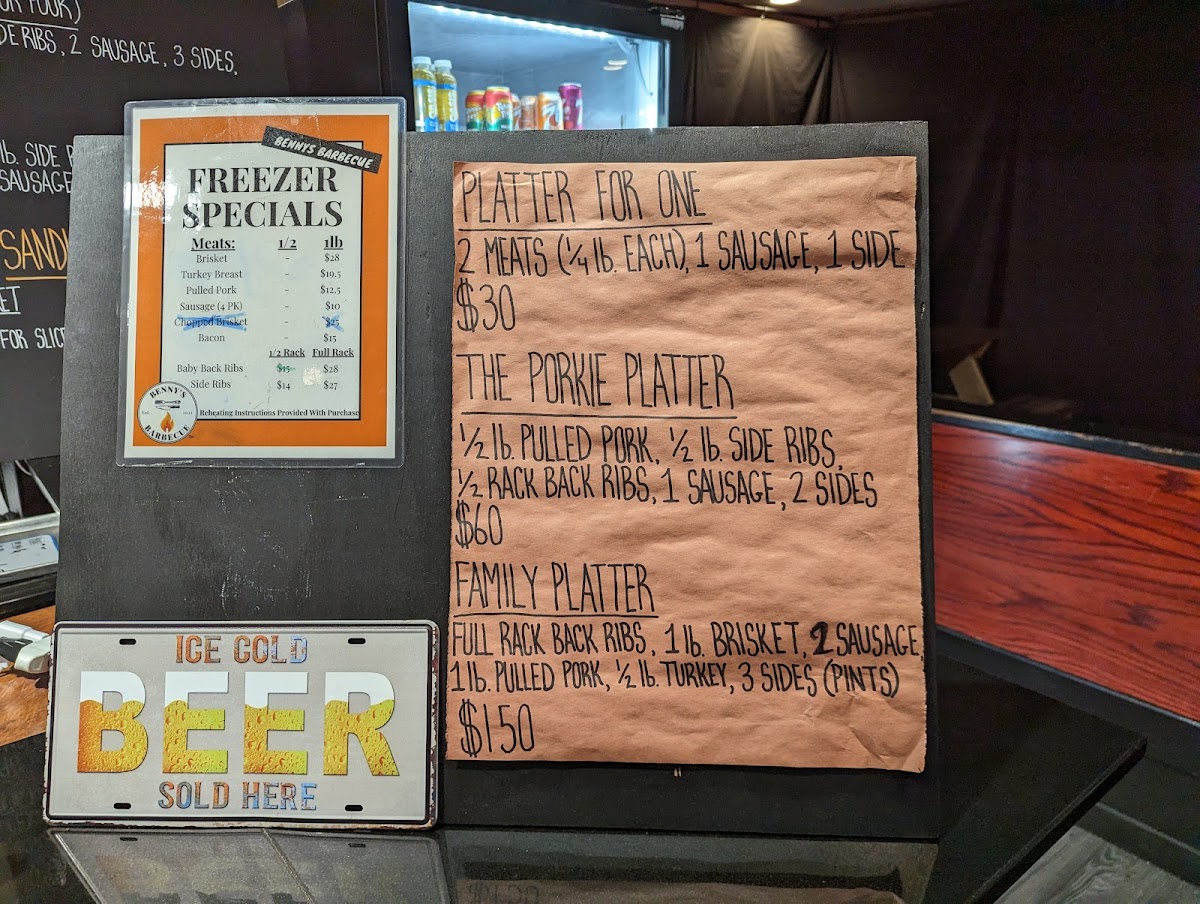 DE RIBS, 2 SAUSAGE, 3 SIDES.
lb. SIDE
SAUSAGE
FOR
BENNYS BARBECUE
FREEZER
SPECIALS
Meats: 1/2 1lb
Brisket - $28
Turkey Breast - $19.5
Pulled Pork - $12.5
Sausage (4 PK) - $10
Chopped Brisket - $25
Bacon - $15
1/2 Rack Full Rack
Baby Back Ribs $15 $28
Side Ribs $14 $27
Reheating Instructions Provided With Purchase
BENNY'S
BARBECUE
PLATTER FOR ONE
2 MEATS (1/4 lb. EACH), 1 SAUSAGE, 1 SIDE
$30
THE PORKIE PLATTER
1/2 lb. PULLED PORK, 1/2 lb. SIDE RIBS,
1/2 RACK BACK RIBS, 1 SAUSAGE, 2 SIDES
$60
FAMILY PLATTER
FULL RACK BACK RIBS, 1 lb. BRISKET, 2 SAUSAGE
1 lb. PULLED PORK, 1/2 lb. TURKEY, 3 SIDES (PINTS)
$150
ICE COLD
BEER
SOLD HERE